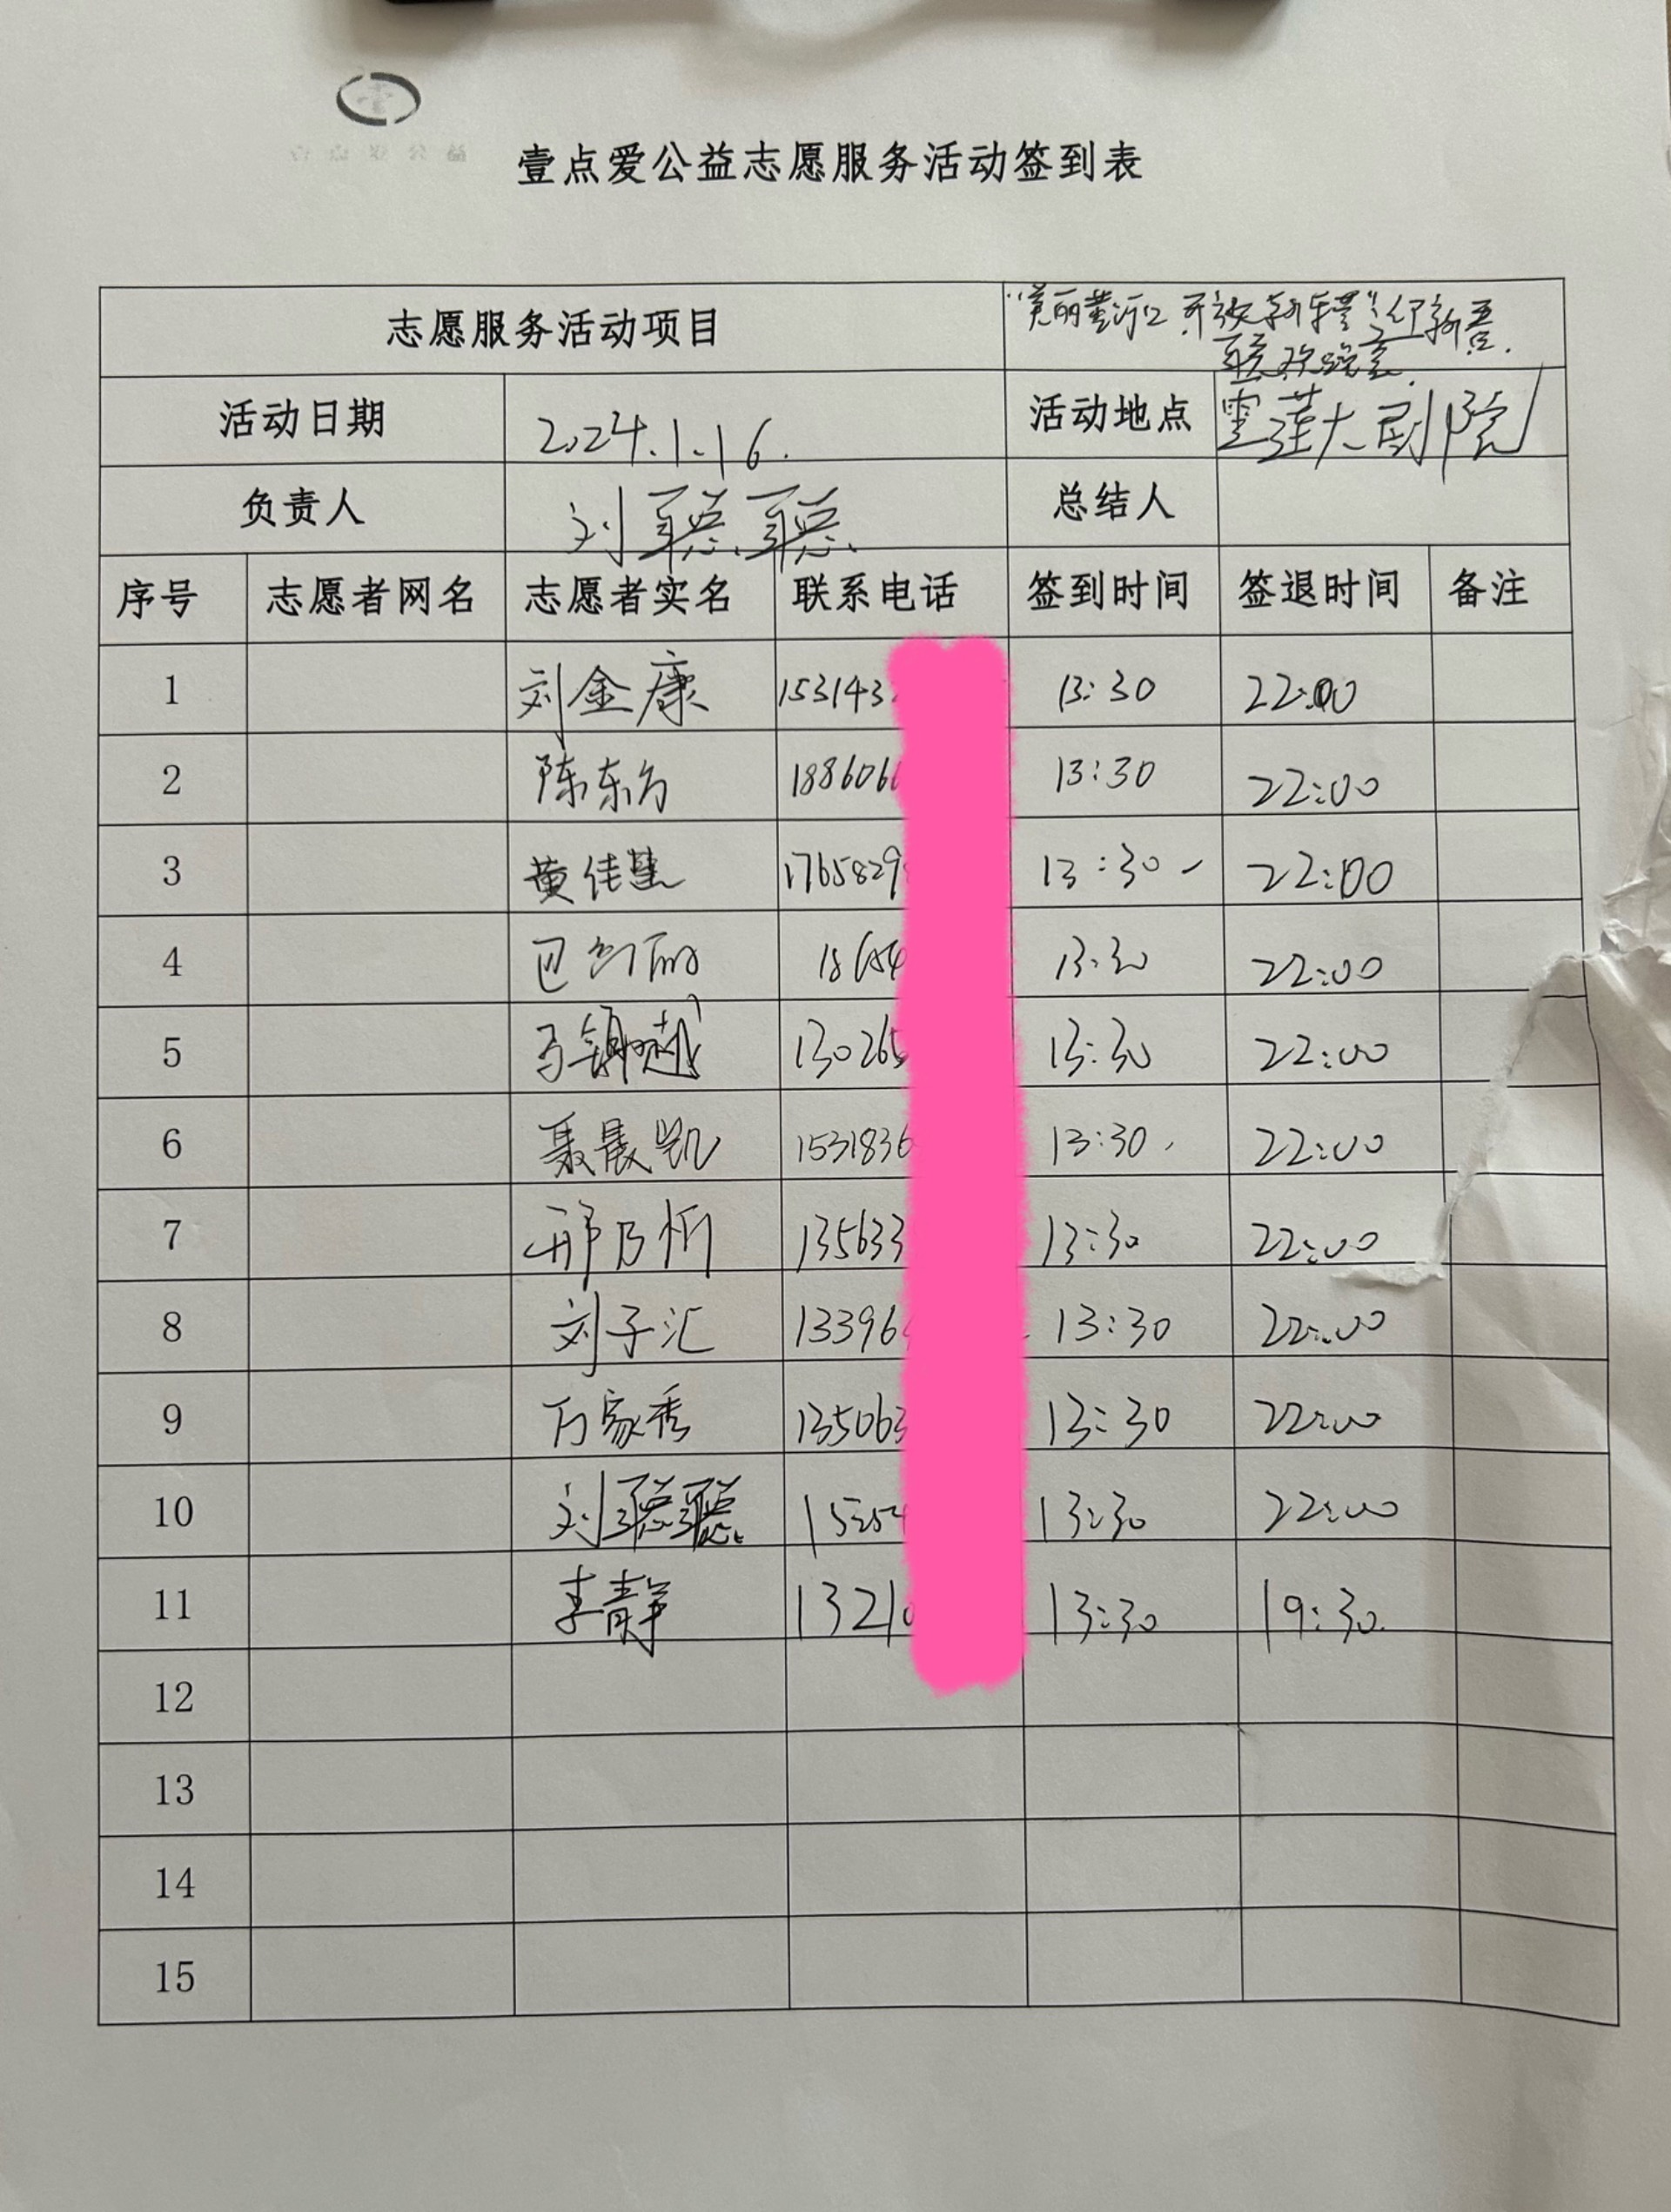 壹点爱公益志愿服务活动签到表
志愿服务活动项目 "美丽黄河口 开放新东营"之纪新春
联欢晚会.
活动日期 2024.1.16. 活动地点 雪莲大剧院
负责人 刘聪聪 总结人
序号 志愿者网名 志愿者实名 联系电话 签到时间 签退时间 备注
1 刘金康 153143 13:30 22:00
2 陈东方 188606 13:30 22:00
3 黄佳慧 1765829 13:30 22:00
4 巴 丽 18654 13:30 22:00
5 马 越 130265 13:30 22:00
6 聂晨凯 1531836 13:30 22:00
7 邢乃忻 135633 13:30 22:00
8 刘子汇 13396 13:30 22:00
9 万家秀 135063 13:30 22:00
10 刘聪聪 15254 13:30 22:00
11 李静 13210 13:30 19:30.
12
13
14
15